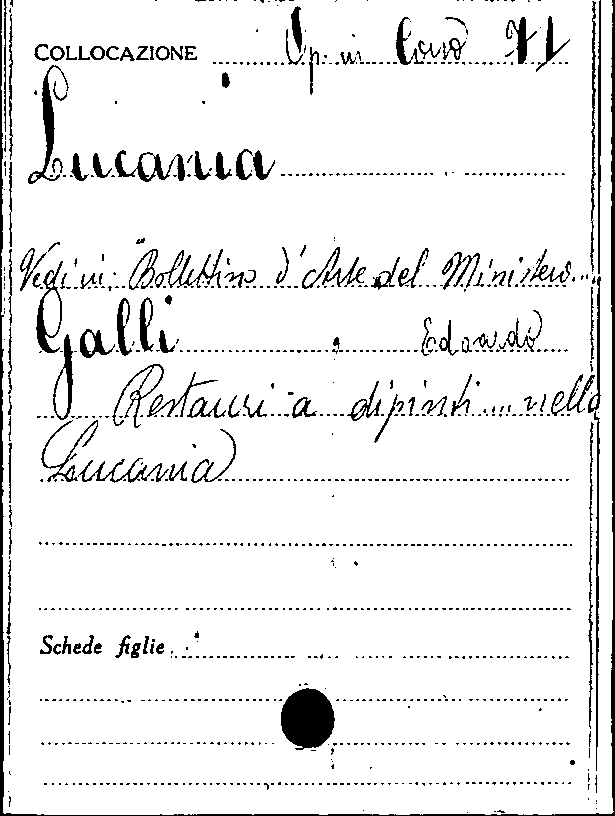 COLLOCAZIONE Op. in Corso 71
Lucania
Vedi in: "Bollettino d'Arte del Ministero....
Galli Edoardo
Restauri a dipinti .... nella
Lucania
Schede figlie